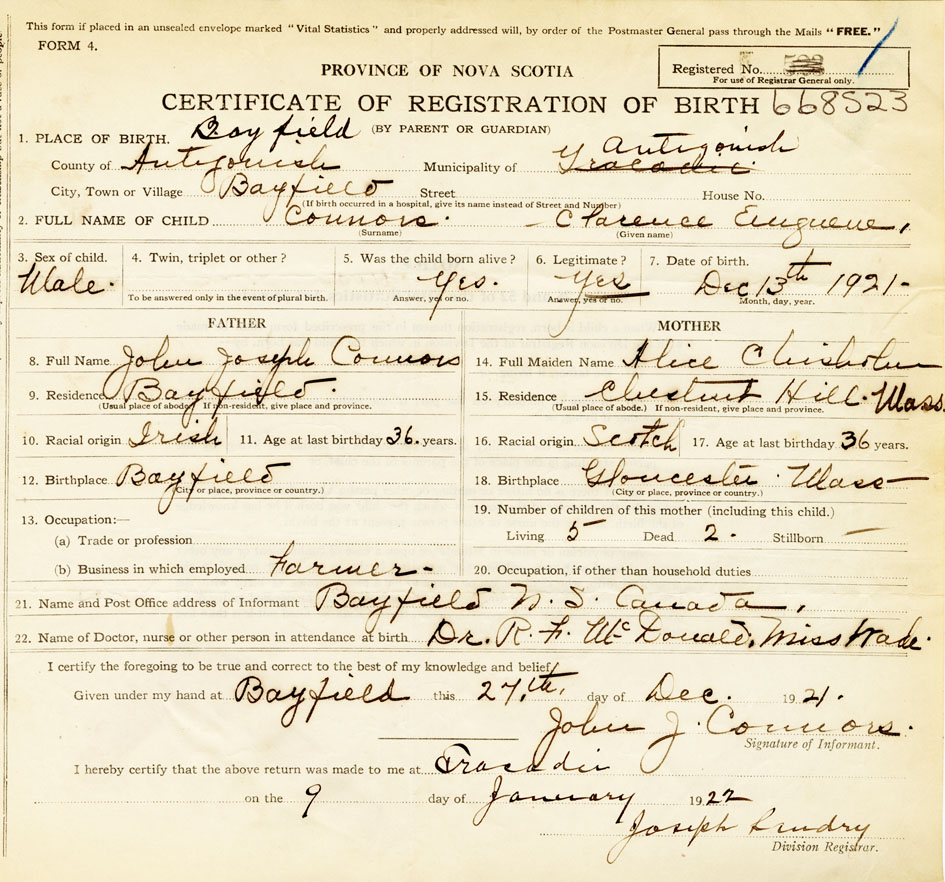 This form if placed in an unsealed envelope marked "Vital Statistics" and properly addressed will, by order of the Postmaster General pass through the Mails "FREE."
FORM 4.
Registered No.
For use of Registrar General only.
PROVINCE OF NOVA SCOTIA
CERTIFICATE OF REGISTRATION OF BIRTH 668523
(BY PARENT OR GUARDIAN)
1. PLACE OF BIRTH. Bayfield
County of Antigonish Municipality of Tracadie Antigonish
City, Town or Village Bayfield Street House No.
(If birth occurred in a hospital, give its name instead of Street and Number)
2. FULL NAME OF CHILD Connors. - Clarence Euguene,
(Surname) (Given name)
3. Sex of child. 4. Twin, triplet or other? 5. Was the child born alive? 6. Legitimate? 7. Date of birth.
Male. Yes. Yes Dec 13th 1921-
To be answered only in the event of plural birth. Answer, yes or no. Answer, yes or no. Month, day, year.
FATHER MOTHER
8. Full Name John Joseph Connors 14. Full Maiden Name Alice Chisholm
9. Residence Bayfield. 15. Residence Chestnut Hill. Mass.
(Usual place of abode.) If non-resident, give place and province. (Usual place of abode.) If non-resident, give place and province.
10. Racial origin Irish 11. Age at last birthday 36. years. 16. Racial origin Scotch 17. Age at last birthday 36 years.
12. Birthplace Bayfield 18. Birthplace Gloucester Mass
(City or place, province or country.) (City or place, province or country.)
13. Occupation:— 19. Number of children of this mother (including this child.)
(a) Trade or profession Living 5 Dead 2. Stillborn —
(b) Business in which employed Farmer- 20. Occupation, if other than household duties
21. Name and Post Office address of Informant Bayfield N. S. Canada,
22. Name of Doctor, nurse or other person in attendance at birth Dr. R. F. McDonald, Miss Wade.
I certify the foregoing to be true and correct to the best of my knowledge and belief.
Given under my hand at Bayfield this 27,th, day of Dec. 1921.
John J. Connors.
Signature of Informant.
I hereby certify that the above return was made to me at Tracadie
on the 9 day of January 1922
Joseph Landry
Division Registrar.